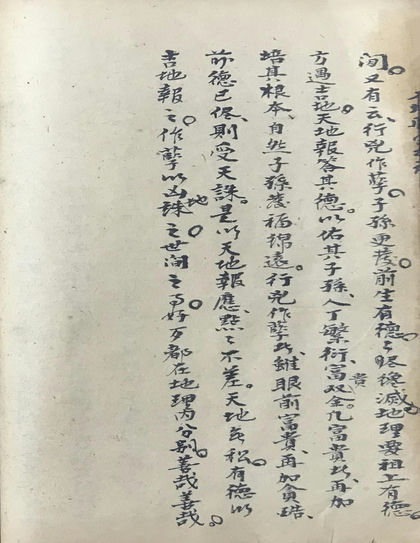 间。又有云、行兇作孽、子孫更發。前生有德、德尽後滅。地理要祖上有德、
方遇吉地。天地報答其德。以佑其子孫、人丁繁衍、富貴双全。凡富貴者、再加
培其根本、自然子孫發福綿遠。行兇作孽者、雖眼前富貴、再加貪
前德已終、則受天誅。是以天地報應、點點不差。天地無私。有德以
吉地報之。作孽以凶地誅之。世间之好歹都在地理内分别。善哉善哉。